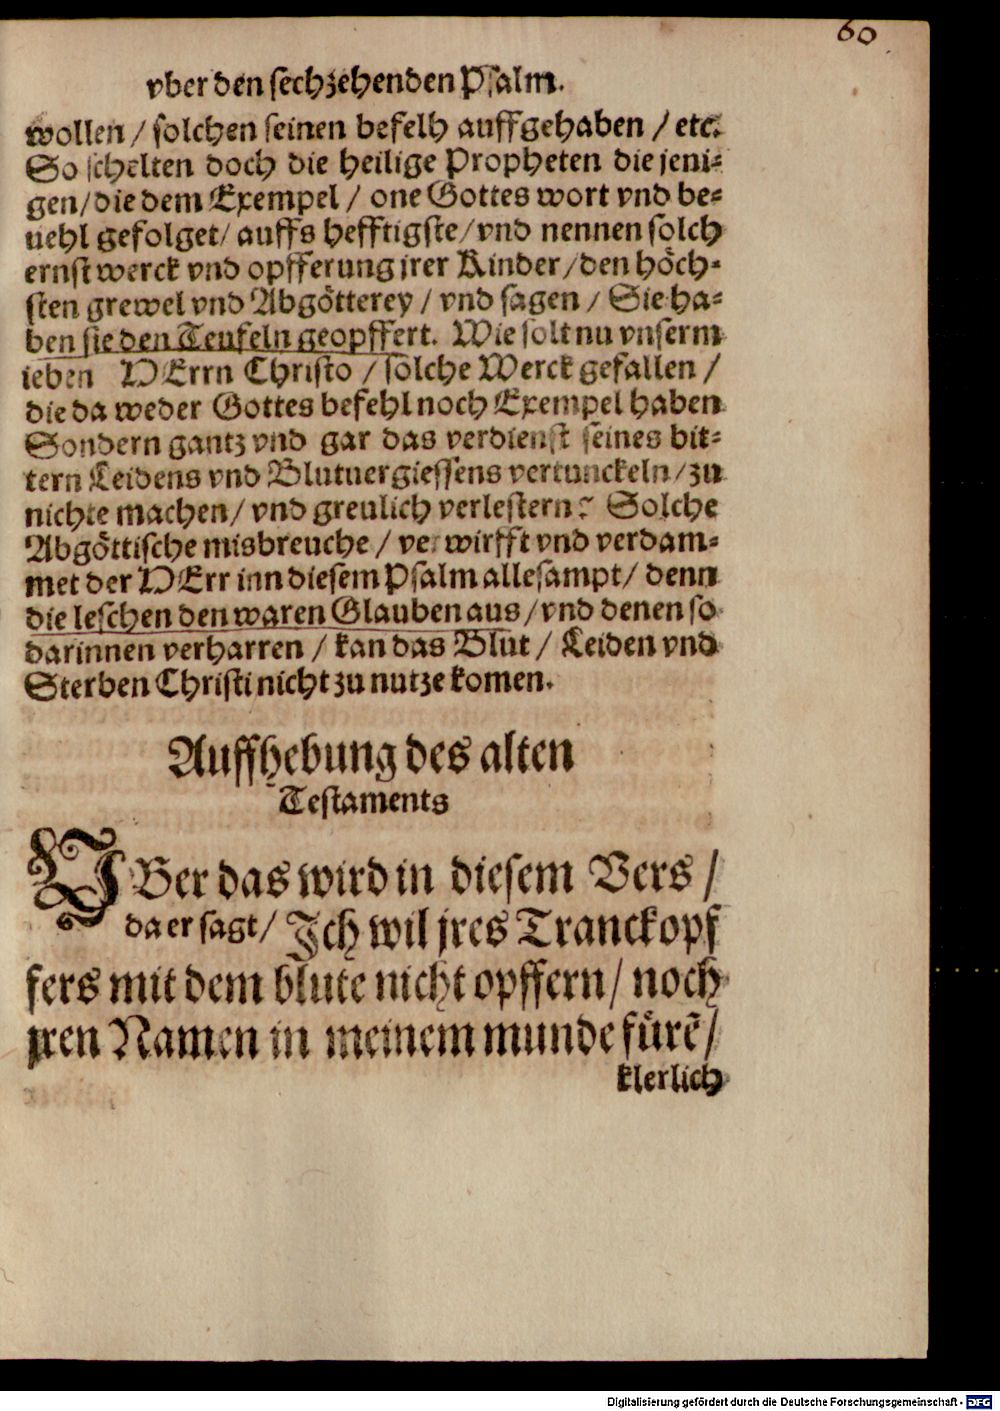 60
vber den sechzehenden Psalm.
wollen / solchen seinen befelh auffgehaben / etc.
So schelten doch die heilige Propheten die jeni-
gen / die dem Exempel / one Gottes wort vnd be-
uehl gefolget / auffs hefftigste / vnd nennen solch
ernst werck vnd opfferung jrer Kinder / den höch-
sten grewel vnd Abgötterey / vnd sagen / Sie ha-
ben sie den Teufeln geopffert. Wie solt nu vnserm
lieben HErrn Christo / solche Werck gefallen /
die da weder Gottes befehl noch Exempel haben
Sondern gantz vnd gar das verdienst seines bit-
tern Leidens vnd Blutuergiessens vertunckeln / zu
nichte machen / vnd greulich verlestern? Solche
Abgöttische misbreuche / verwirfft vnd verdam-
met der HErr inn diesem Psalm allesampt / denn
die leschen den waren Glauben aus / vnd denen so
darinnen verharren / kan das Blut / Leiden vnd
Sterben Christi nicht zu nutze komen.
Auffhebung des alten
Testaments
VBer das wird in diesem Vers /
da er sagt / Ich wil jres Tranckopf
fers mit dem blute nicht opffern / noch
jren Namen in meinem munde fürẽ /
klerlich
Digitalisierung gefördert durch die Deutsche Forschungsgemeinschaft - DFG